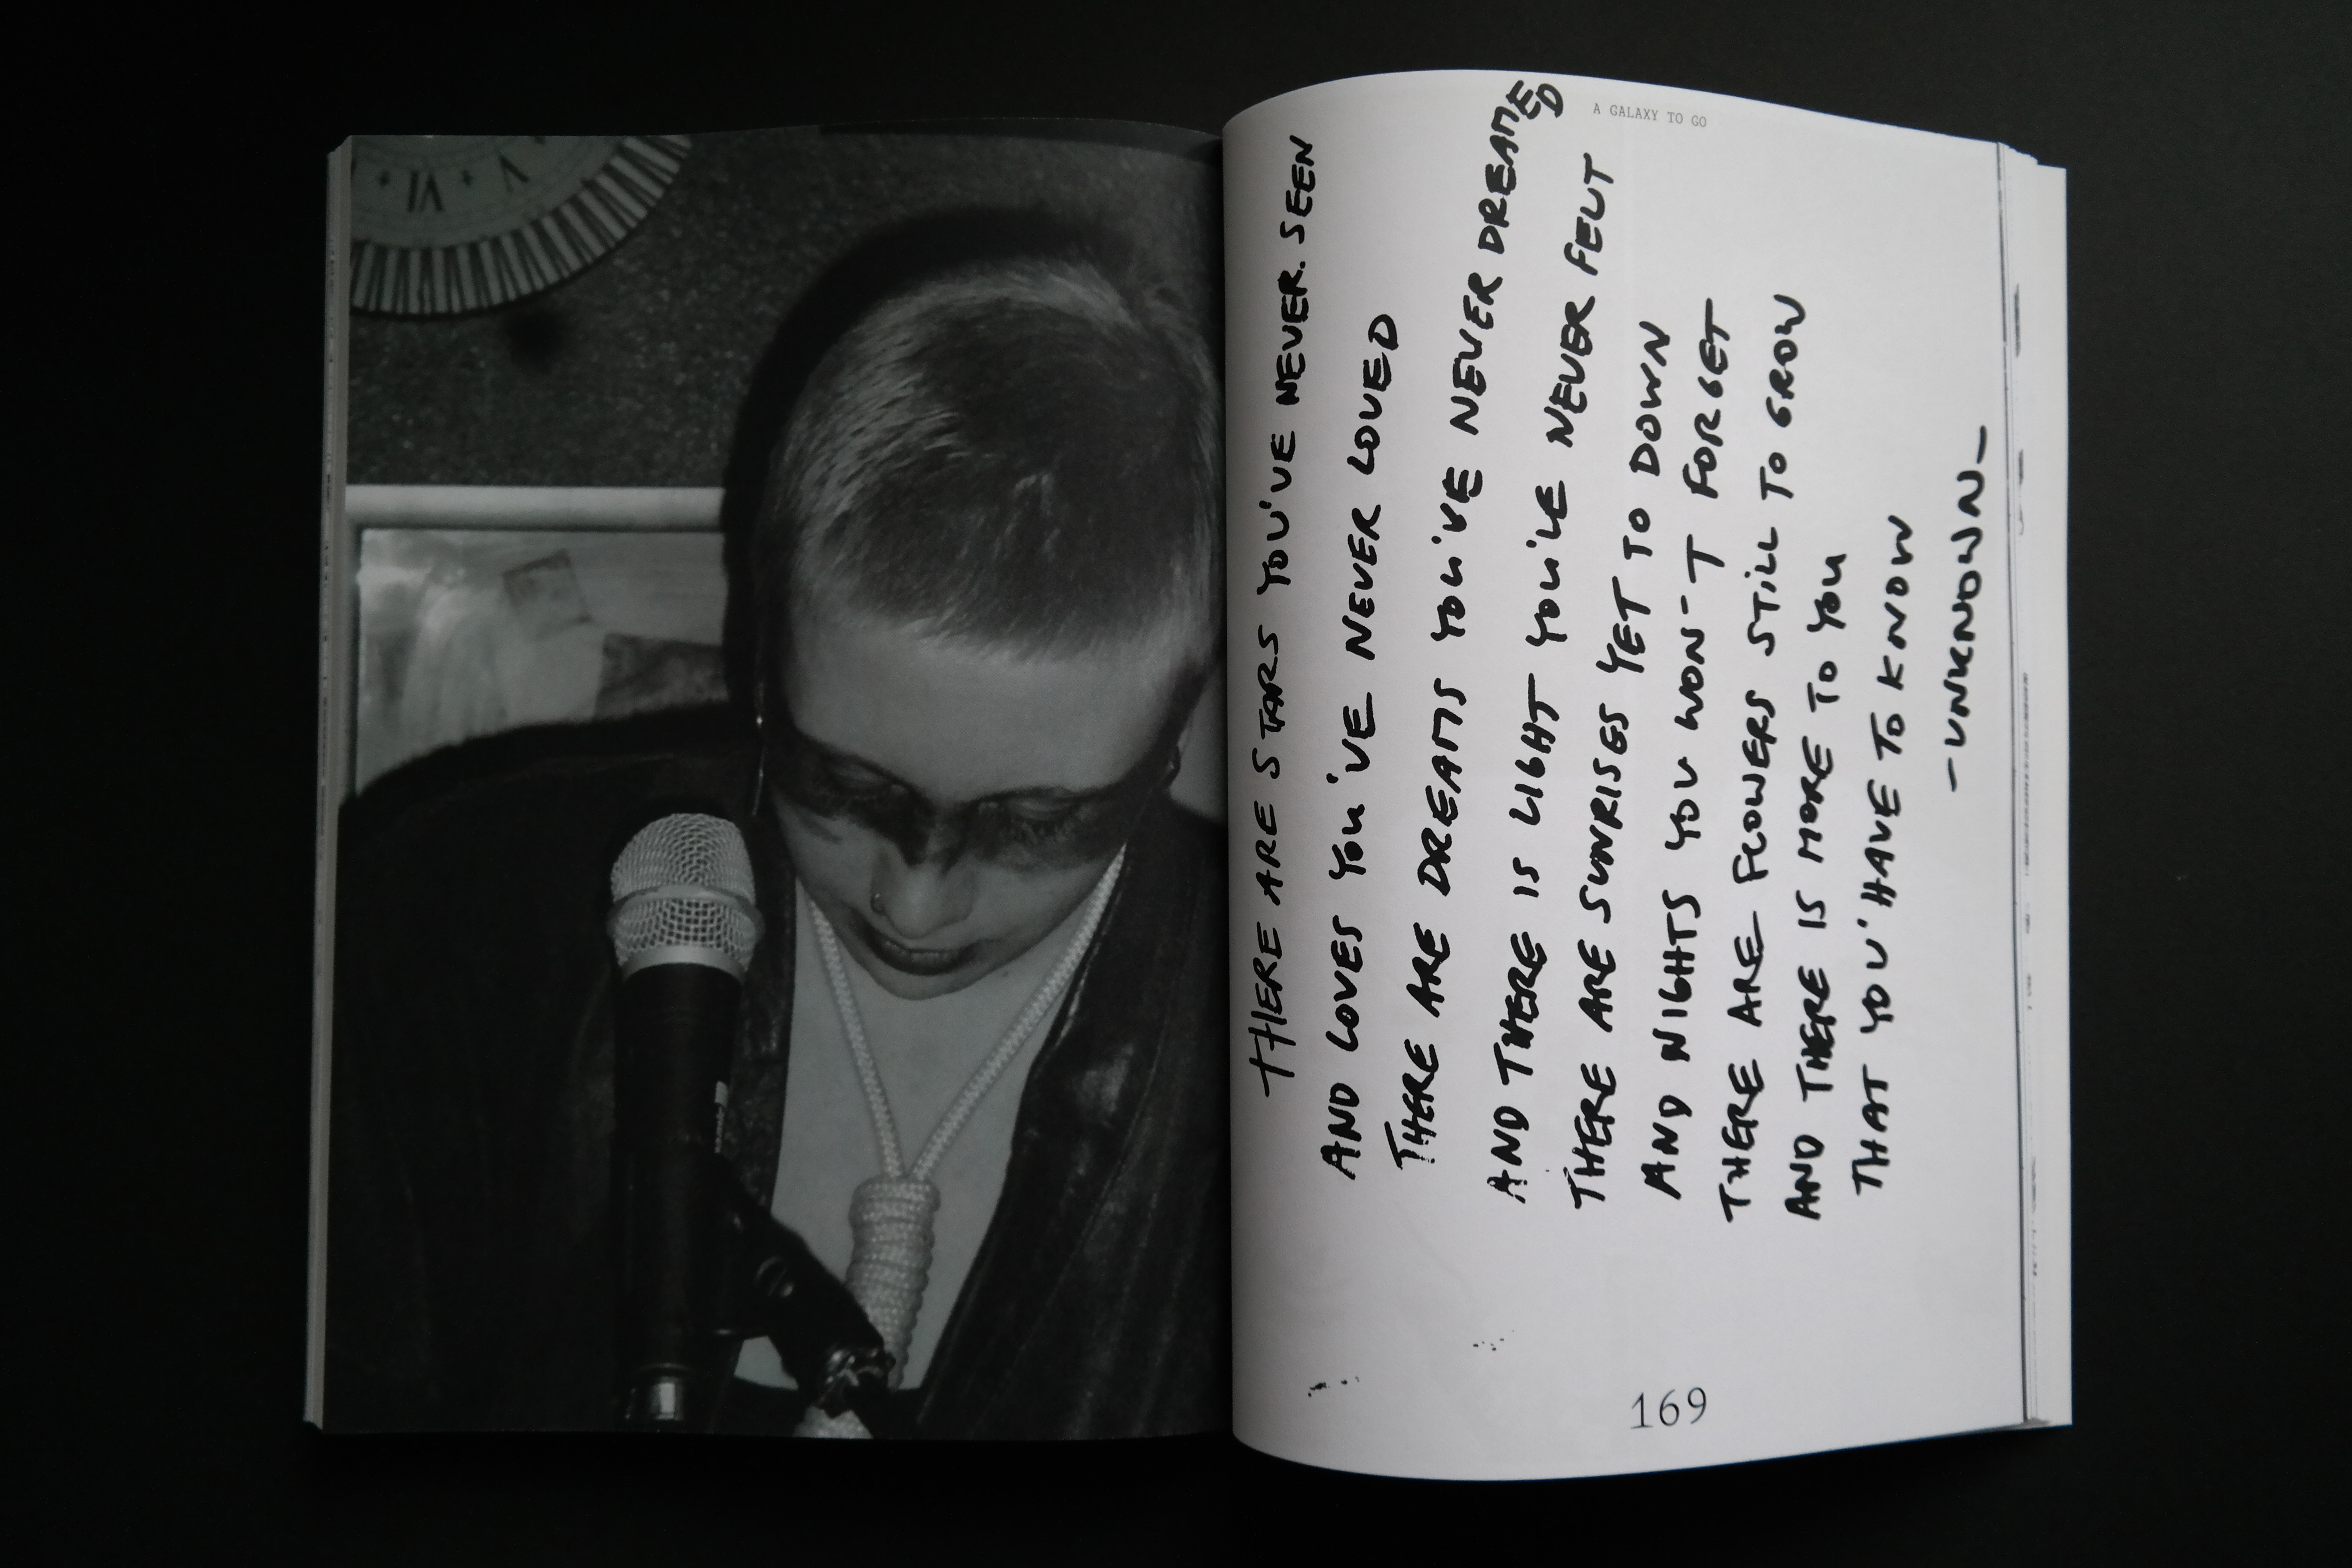 VI V
A GALAXY TO GO
THERE ARE STARS YOU'VE NEVER. SEEN
AND LOVES YOU'VE NEVER LOVED
THERE ARE DREAMS YOU'VE NEVER DREAMED
AND THERE IS LIGHT YOU'VE NEVER FELT
THERE ARE SUNRISES YET TO DOWN
AND NIGHTS YOU WON-T FORGET
THERE ARE FLOWERS STILL TO GROW
AND THERE IS MORE TO YOU
THAT YOU'HAVE TO KNOW
-UNKNOWN-
169